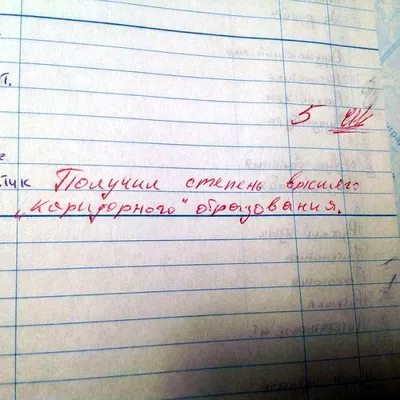 п.
5
тик Получил степень высшего
„каридорного" образования.